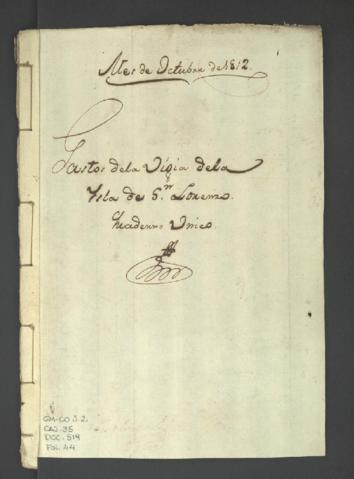 Mes de Octubre de 1812.
Gastos de la Vigia de la
Ysla de Sn. Lorenzo.
Quaderno Unico.
GM-CO 3.2
CAJ-35
DOC-514
FOL-44